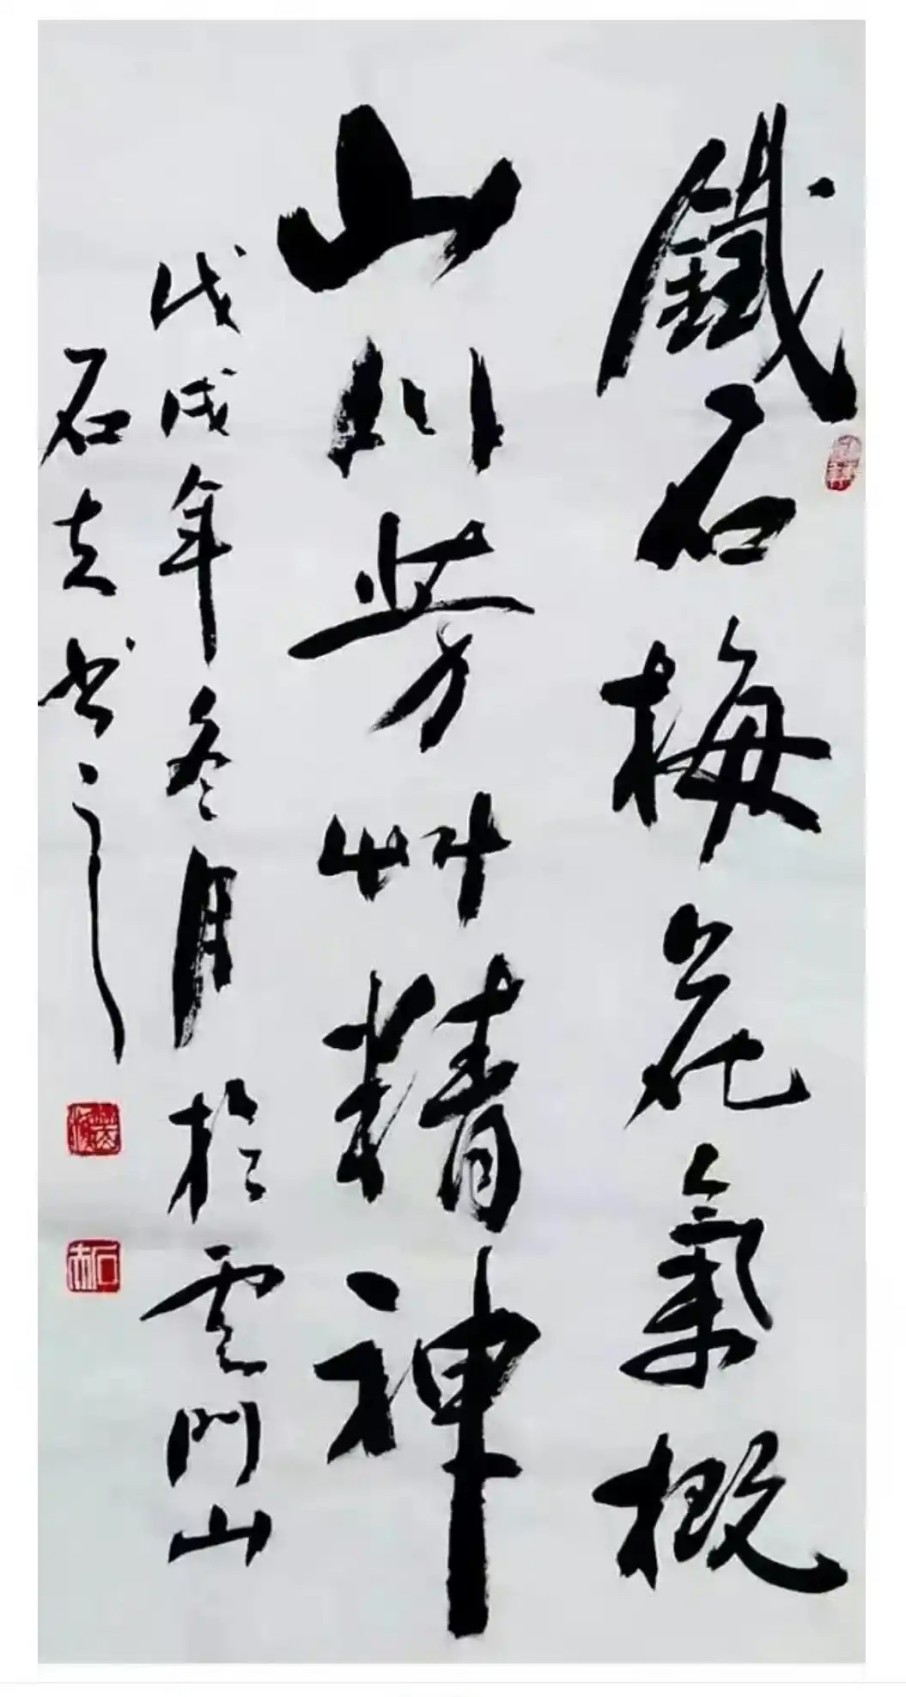 鐵石梅花氣概
山川芳艸精神
戊戌年冬月於雲門山
石 书之